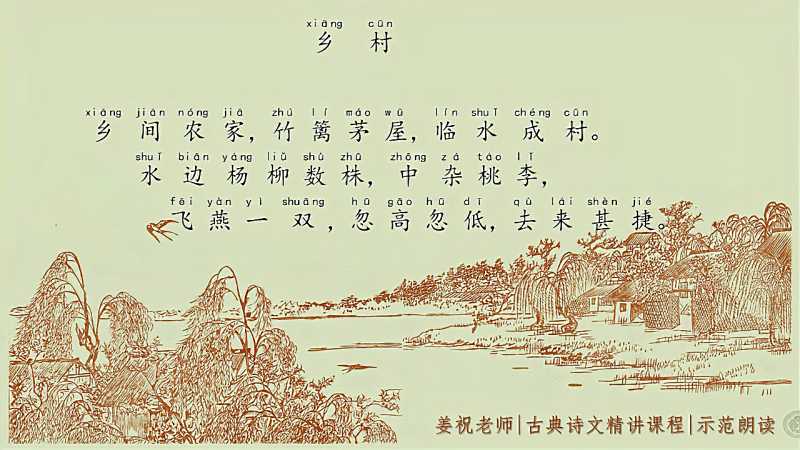 xiāng cūn
乡 村
xiāng jiān nóng jiā zhú lí máo wū lín shuǐ chéng cūn
乡间农家,竹篱茅屋,临水成村。
shuǐ biān yáng liǔ shù zhū zhōng zá táo lǐ
水边杨柳数株,中杂桃李,
fēi yàn yì shuāng hū gāo hū dī qù lái shèn jié
飞燕一双,忽高忽低,去来甚捷。
姜祝老师|古典诗文精讲课程|示范朗读